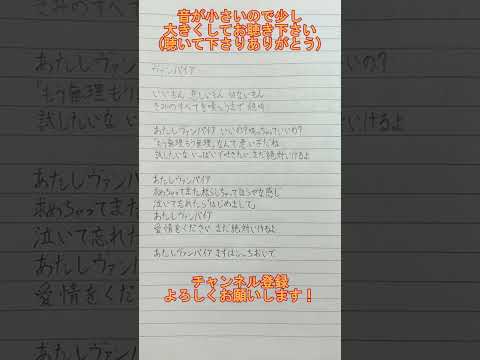 音が小さいので少し
大きくしてお聴き下さい
(聴いて下さりありがとう)
ヴァンパイア
いいもん 悲しいもん 切ないもん
きみのすべてを喰らうまで 絶叫
あたしヴァンパイア いいの?吸っちゃっていいの?
「もう無理 もう無理」なんて 悪い子だね
試したいな いっぱいで吐きたい まだ絶対いけるよ
あたしヴァンパイア
求めちゃってまた 枯らしちゃって
泣いて忘れたら「はじめまして」
あたしヴァンパイア
愛情をください まだ絶対いけるよ
あたしヴァンパイア まずはこっちおいで
チャンネル登録
よろしくお願いします!